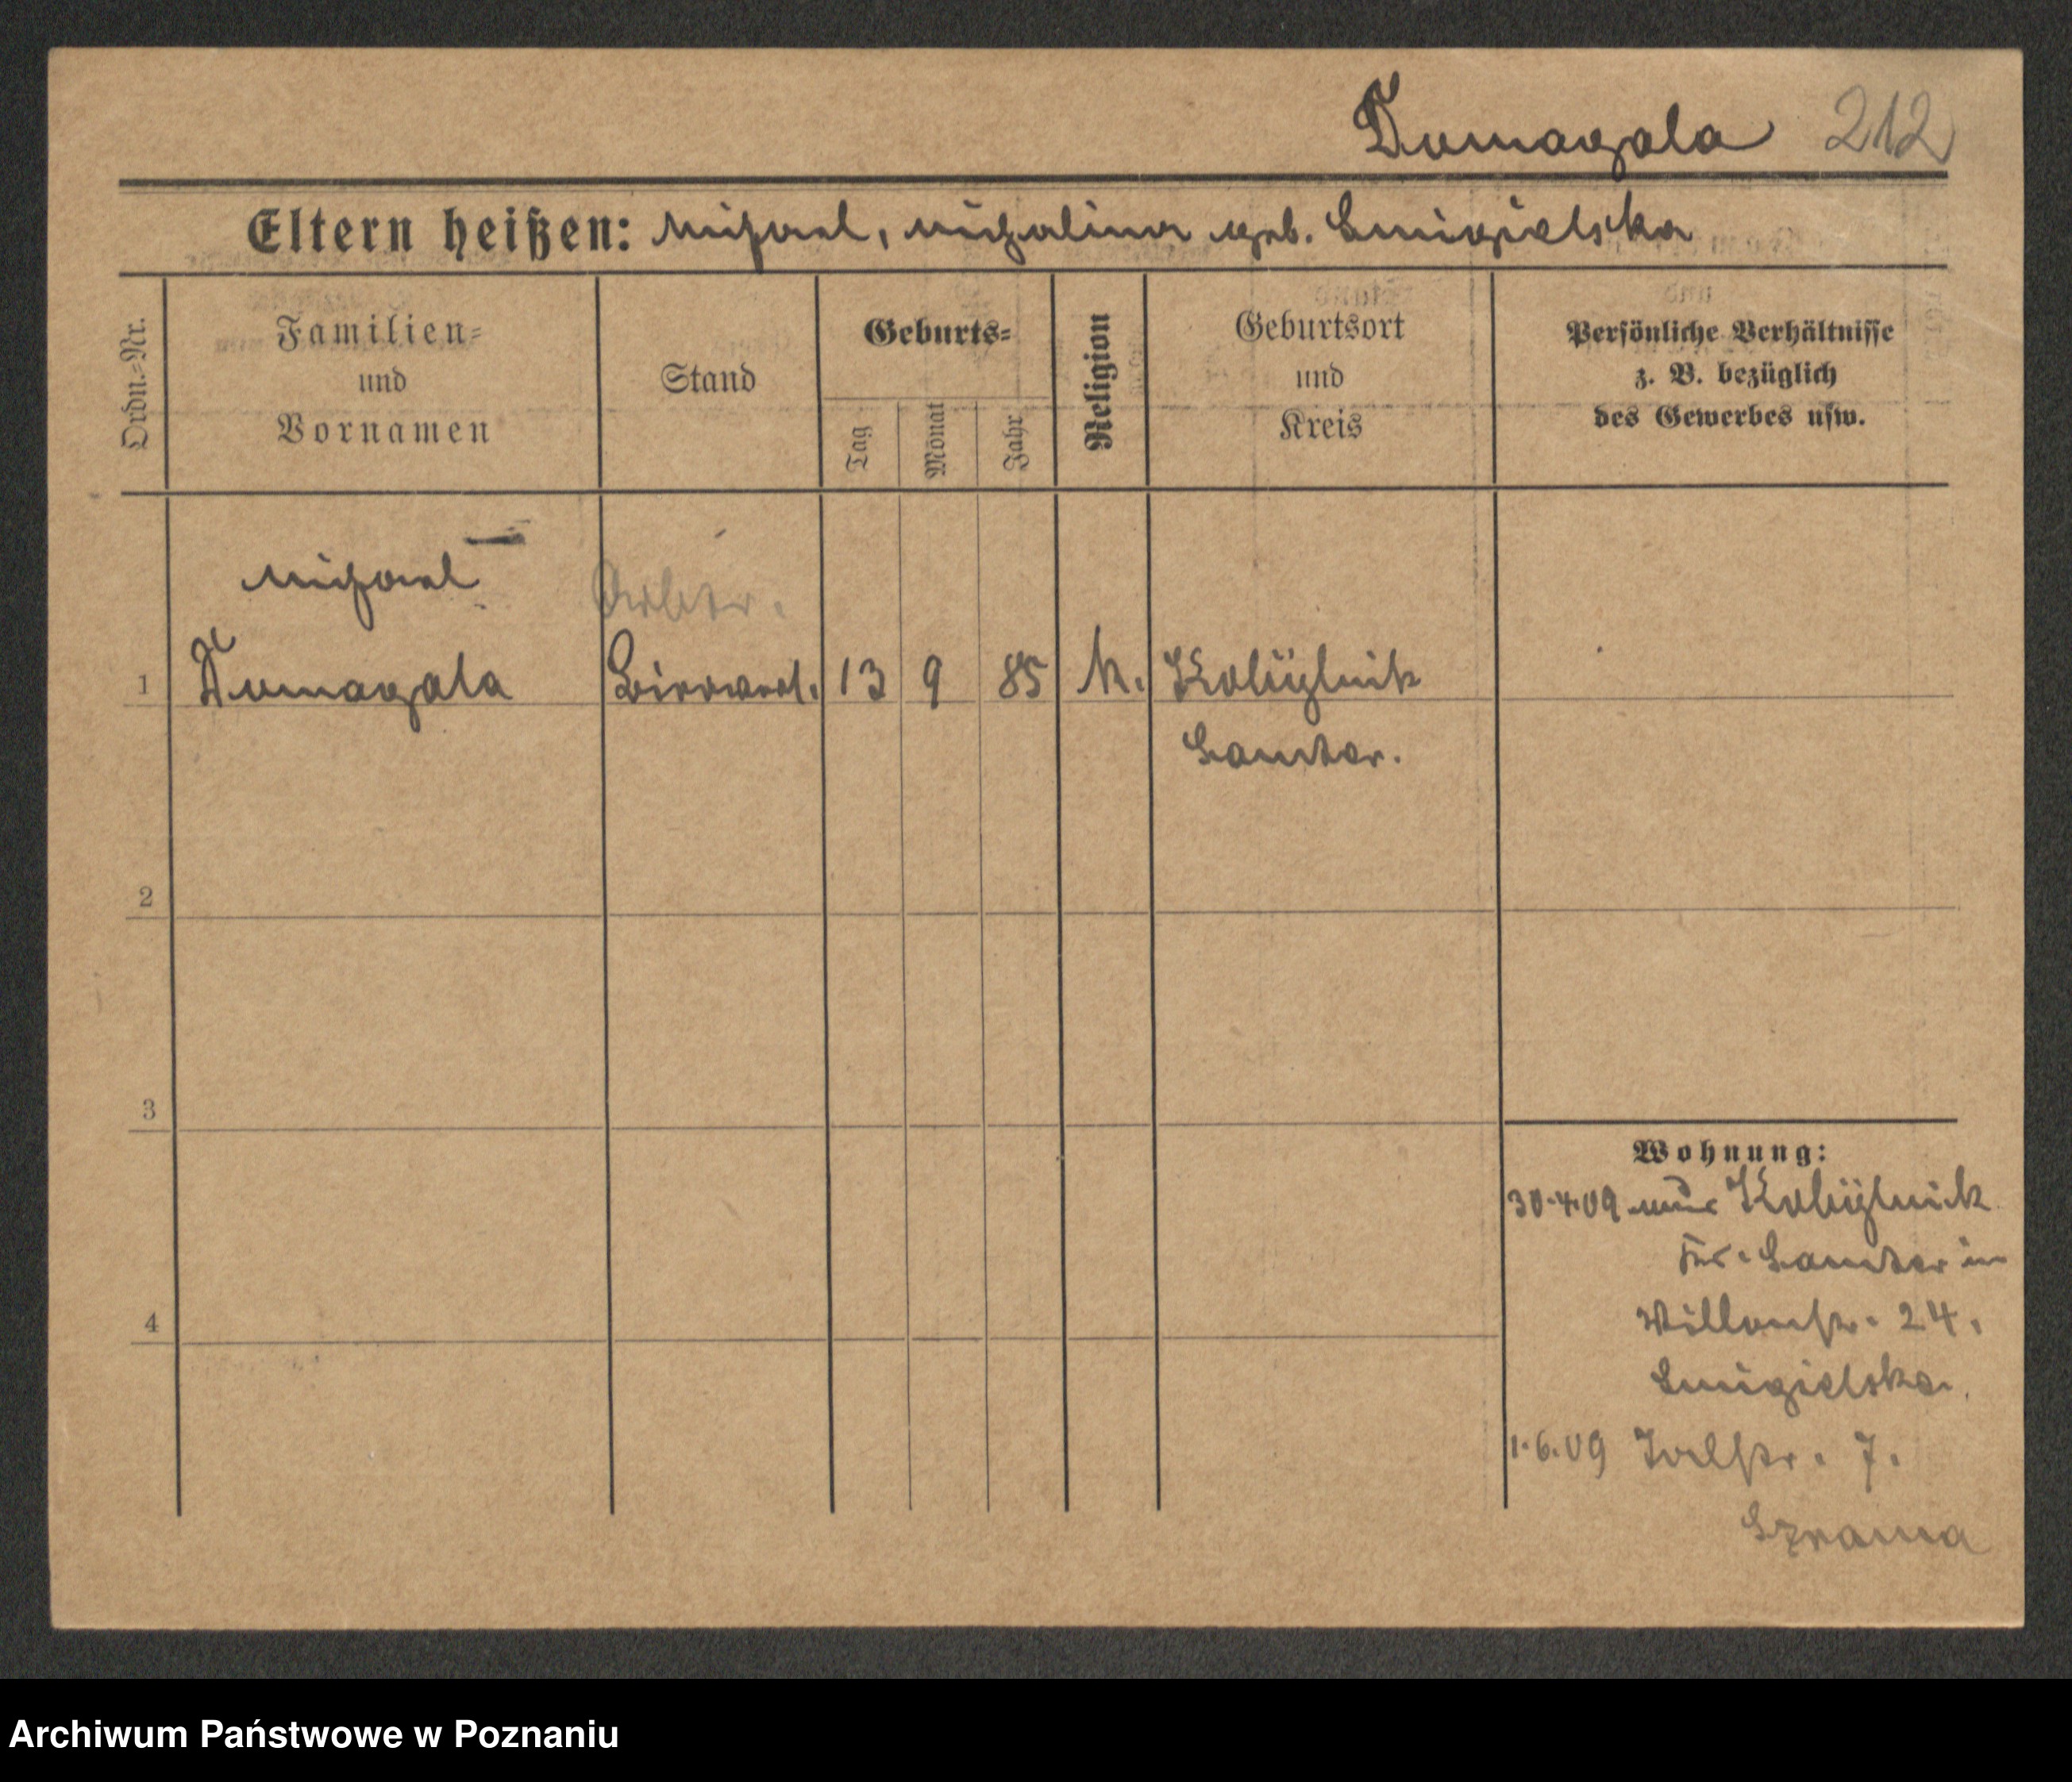 Domagala 212
Eltern heißen: Michael, Michalina geb. Smigielska
Ordn.=Nr.
Familien=
und
Vornamen
Stand
Geburts=
Tag
Monat
Jahr
Religion
Geburtsort
und
Kreis
Persönliche Verhältnisse
z. B. bezüglich
des Gewerbes usw.
Michael
Arbtr.
1 Domagala 13 9 85 k. Kobylnik
Samter.
2
3
4
Wohnung:
30.4.09 aus Kobylnik
Kr. Samter in
24.
Smigielska.
1.6.09 7.
Szrama
Archiwum Państwowe w Poznaniu